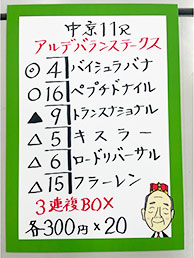 中京11R
アルデバランステークス
◎4 バイシュラバナ
○16 ペプチドナイル
▲9 トランスナショナル
△5 キスラー
△6 ロードリバーサル
△15 フラーレン
3連複BOX
各300円×20